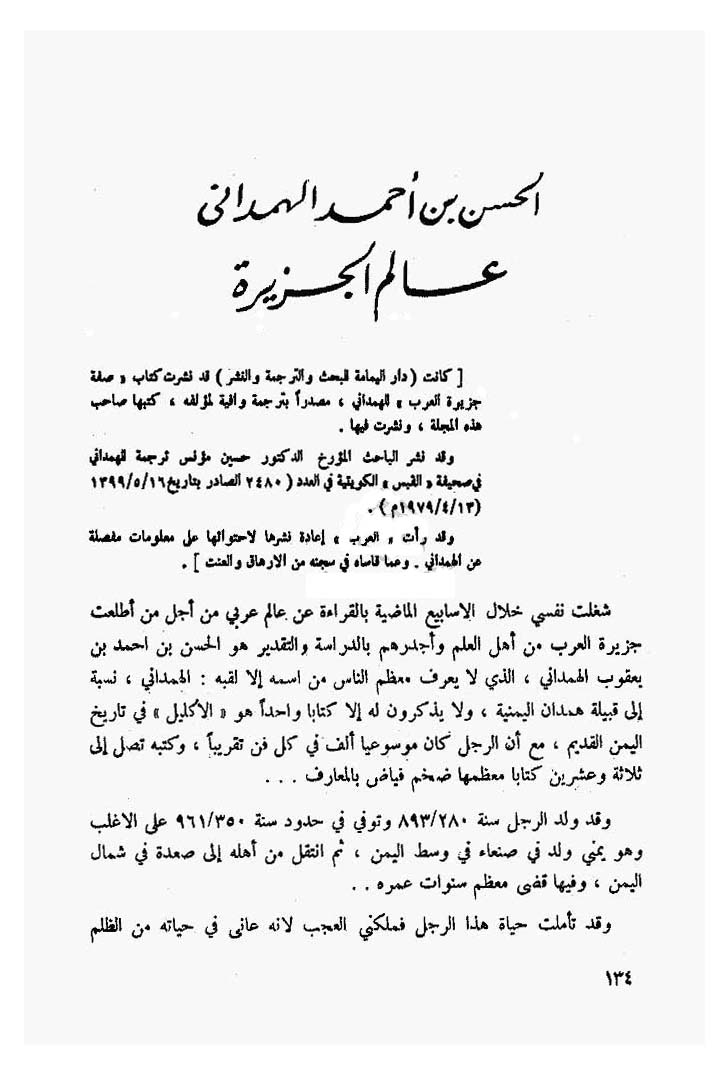 الحسن بن أحمد الهمداني
عالم الجزيرة
[ كانت ( دار اليمامة للبحث والترجمة والنشر ) قد نشرت كتاب « صفة
جزيرة العرب » للهمداني ، مصدراً بترجمة وافية لمؤلفه ، كتبها صاحب
هذه المجلة ، ونشرت فيها .
وقد نشر الباحث المؤرخ الدكتور حسين مؤنس ترجمة للهمداني
في صحيفة « القبس » الكويتية في العدد ( ٢٤٨٠ الصادر بتاريخ ١٣٩٩/٥/١٦
(١٩٧٩/٤/١٣م) .
وقد رأت « العرب » إعادة نشرها لاحتوائها على معلومات مفصلة
عن الهمداني . وعما قاساه في سجنه من الارهاق والعنت ] .
شغلت نفسي خلال الاسابيع الماضية بالقراءة عن عالم عربي من أجل من أطلعت
جزيرة العرب من أهل العلم وأجدرهم بالدراسة والتقدير هو الحسن بن احمد بن
يعقوب الهمداني ، الذي لا يعرف معظم الناس من اسمه إلا لقبه : الهمداني ، نسبة
إلى قبيلة همدان اليمنية ، ولا يذكرون له إلا كتابا واحداً هو « الأكليل » في تاريخ
اليمن القديم ، مع أن الرجل كان موسوعيا ألف في كل فن تقريباً ، وكتبه تصل إلى
ثلاثة وعشرين كتابا معظمها ضخم فياض بالمعارف . . .
وقد ولد الرجل سنة ٨٩٣/٢٨٠ وتوفي في حدود سنة ٩٦١/٣٥٠ على الاغلب
وهو يمني ولد في صنعاء في وسط اليمن ، ثم انتقل من أهله إلى صعدة في شمال
اليمن ، وفيها قضى معظم سنوات عمره . .
وقد تأملت حياة هذا الرجل فملكني العجب لانه عانى في حياته من الظلم
١٣٤